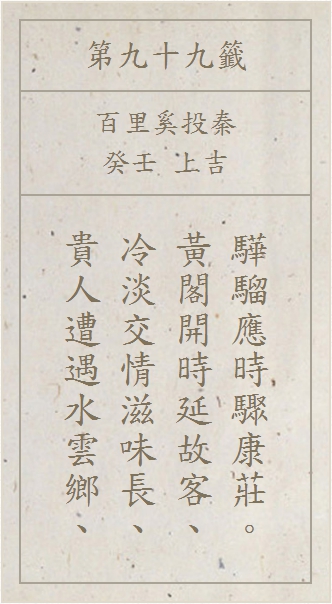 第九十九籤
百里奚投秦
癸壬 上吉
貴人遭遇水雲鄉、
冷淡交情滋味長、
黃閣開時延故客、
驊騮應時驟康莊。